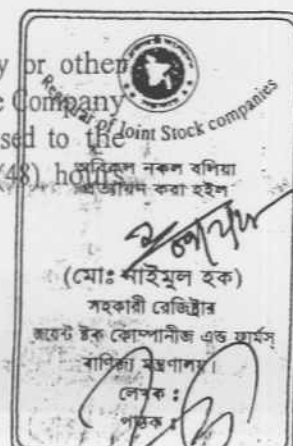 y or other
e Company
sed to the
(48) hours
Registrar of Joint Stock companies
অবিকল নকল বলিয়া
প্রত্যায়ন করা হইল
(মোঃ নাইমুল হক)
সহকারী রেজিষ্ট্রার
জয়েন্ট ষ্টক কোম্পানীজ এন্ড ফার্মস্
বাণিজ্য মন্ত্রণালয়।
লেখক :
পাঠক :